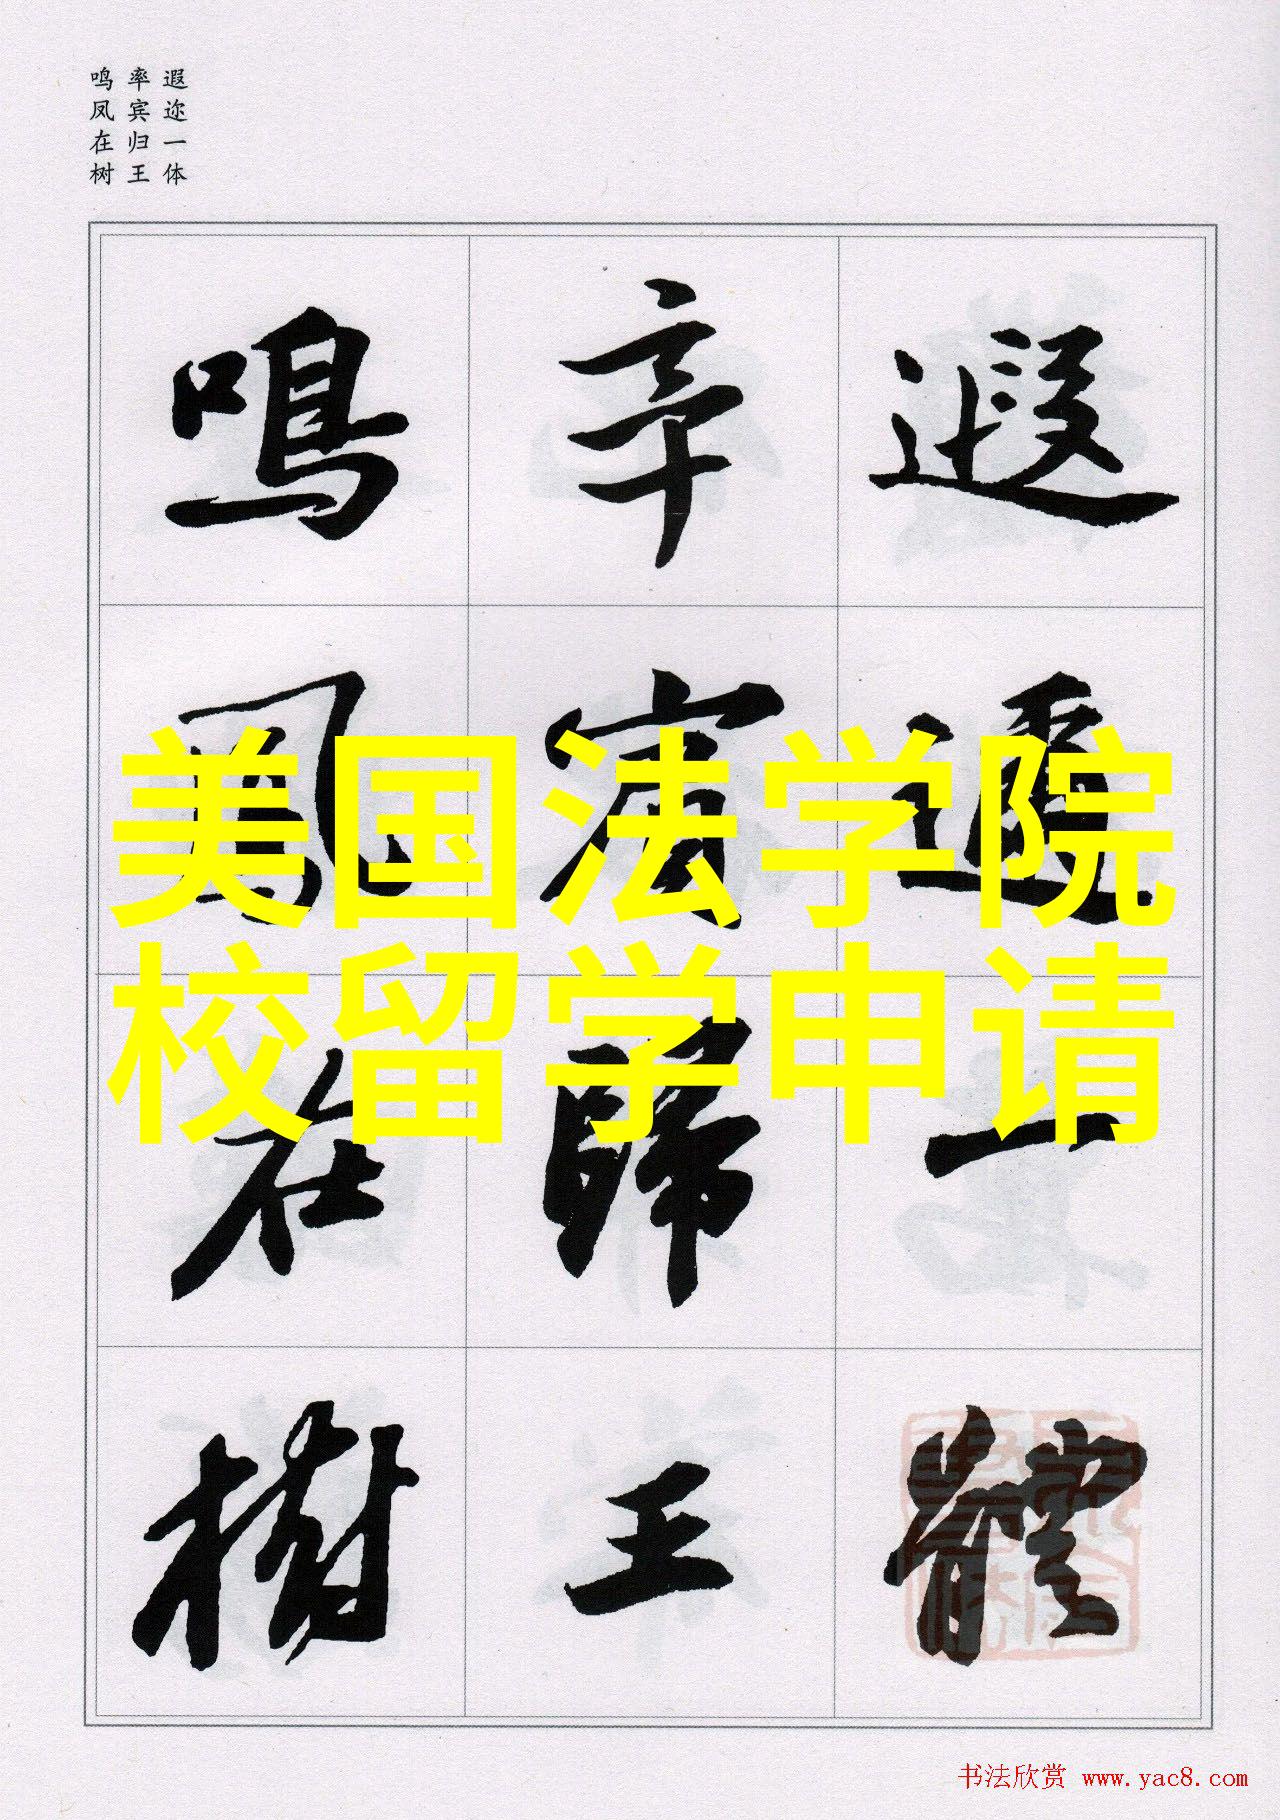 遐迩一体
率宾归王
鸣凤在树
遐邇一體
率賓歸王
鳴鳳在樹
美国法学院
校留学申请
书法欣赏 www.yac8.com